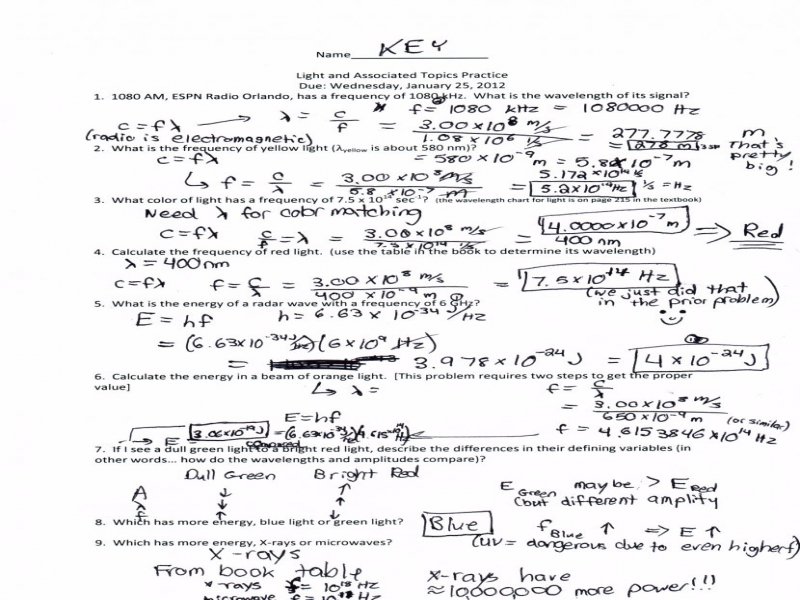 Name KEY
Light and Associated Topics Practice
Due: Wednesday, January 25, 2012
1. 1080 AM, ESPN Radio Orlando, has a frequency of 1080 kHz. What is the wavelength of its signal?
f = 1080 kHz = 1080000 Hz
c = fλ → λ = c/f = 3.00 x 10⁸ m/s / 1.08 x 10⁶ 1/s = 277.7778 m
(radio is electromagnetic) = 278 m 3SF That's pretty big!
2. What is the frequency of yellow light (λyellow is about 580 nm)?
c = fλ = 580 x 10⁻⁹ m = 5.8 x 10⁻⁷ m
↳ f = c/λ = 3.00 x 10⁸ m/s / 5.8 x 10⁻⁷ m = 5.172 x 10¹⁴ 1/s
= 5.2 x 10¹⁴ Hz 1/s = Hz
3. What color of light has a frequency of 7.5 x 10¹⁴ sec⁻¹? (the wavelength chart for light is on page 215 in the textbook)
Need λ for color matching
c = fλ c/f = λ = 3.00 x 10⁸ m/s / 7.5 x 10¹⁴ 1/s = 4.0000 x 10⁻⁷ m ⇒ Red
400 nm
4. Calculate the frequency of red light. (use the table in the book to determine its wavelength)
λ = 400 nm
c = fλ f = c/λ = 3.00 x 10⁸ m/s / 400 x 10⁻⁹ m = 7.5 x 10¹⁴ Hz
(we just did that in the prior problem)
5. What is the energy of a radar wave with a frequency of 6 GHz?
E = hf h = 6.63 x 10⁻³⁴ J/Hz
= (6.63 x 10⁻³⁴ J/Hz)(6 x 10⁹ Hz)
= 3.978 x 10⁻²⁴ J = 4 x 10⁻²⁴ J
6. Calculate the energy in a beam of orange light. [This problem requires two steps to get the proper
value]
↳ λ = f = c/λ
E = hf = 3.00 x 10⁸ m/s / 650 x 10⁻⁹ m (or similar)
3.06 x 10⁻¹⁹ J f = 4.6153846 x 10¹⁴ Hz
7. If I see a dull green light to a bright red light, describe the differences in their defining variables (in
other words... how do the wavelengths and amplitudes compare)?
Dull Green Bright Red
A ↓ ↑
E Green may be > E Red
(but different amplity
8. Which has more energy, blue light or green light? Blue f Blue ↑ ⇒ E ↑
(UV = dangerous due to even higher f)
9. Which has more energy, X-rays or microwaves?
X-rays
From book table
X-rays have
x-rays f = 10¹⁸ Hz
≈ 10,000,000 more power!!!